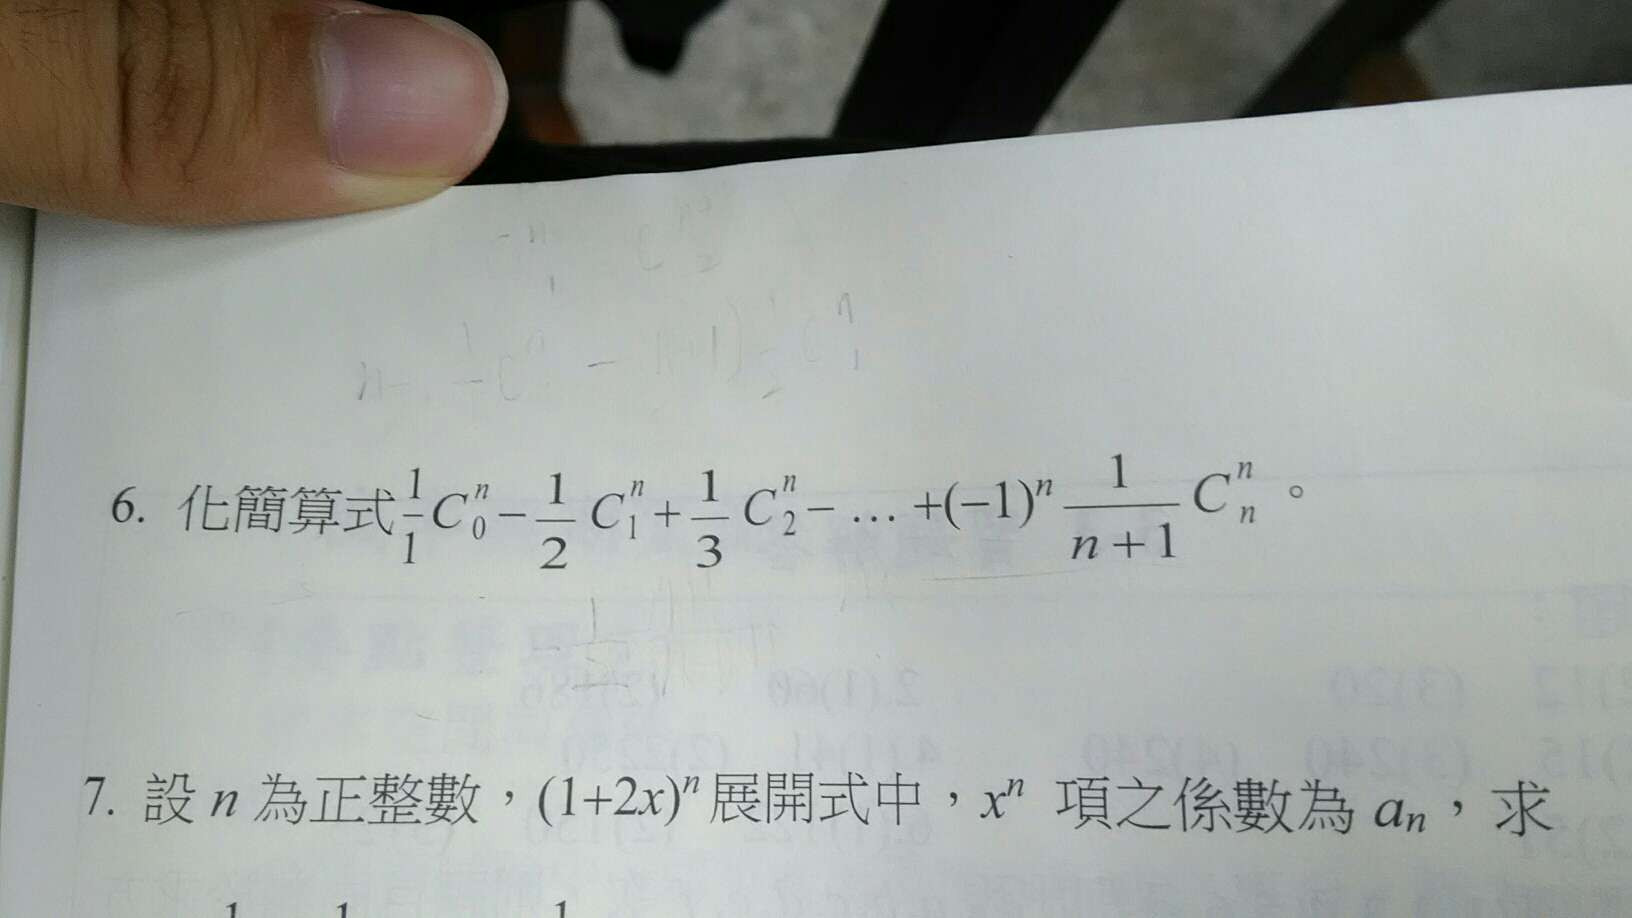 6. 化簡算式 \frac{1}{1} C_0^n - \frac{1}{2} C_1^n + \frac{1}{3} C_2^n - … + (-1)^n \frac{1}{n+1} C_n^n 。
7. 設 n 為正整數，(1+2x)^n 展開式中，x^n 項之係數為 a_n，求